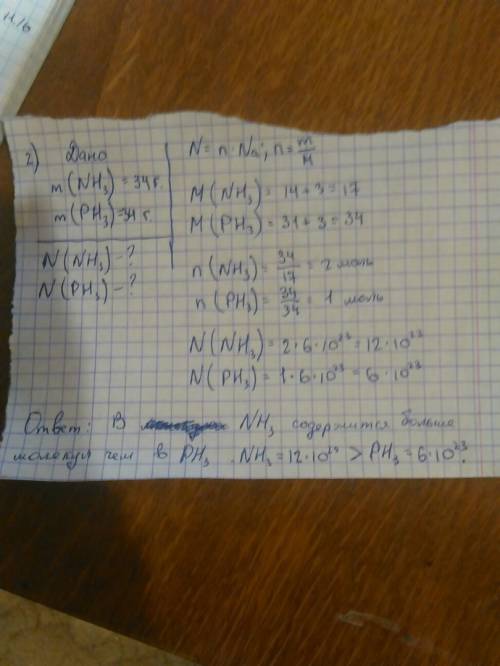 11/6
2) Дано
m(NH₃) = 34 г.
m(PH₃) = 34 г.
N(NH₃) - ?
N(PH₃) - ?
N = n · Na; n = m/M
M(NH₃) = 14 + 3 = 17
M(PH₃) = 31 + 3 = 34
n(NH₃) = 34/17 = 2 моль
n(PH₃) = 34/34 = 1 моль
N(NH₃) = 2 · 6 · 10²³ = 12 · 10²³
N(PH₃) = 1 · 6 · 10²³ = 6 · 10²³
Ответ: В NH₃ содержится больше
молекул чем в PH₃. NH₃ = 12 · 10²³ > PH₃ = 6 · 10²³.